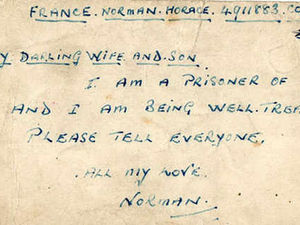 FRANCE. NORMAN. HORACE. 4911883. C
Y DARLING WIFE AND SON
I AM A PRISONER OF
AND I AM BEING WELL. TREA
PLEASE TELL EVERYONE.
ALL MY LOVE.
NORMAN.